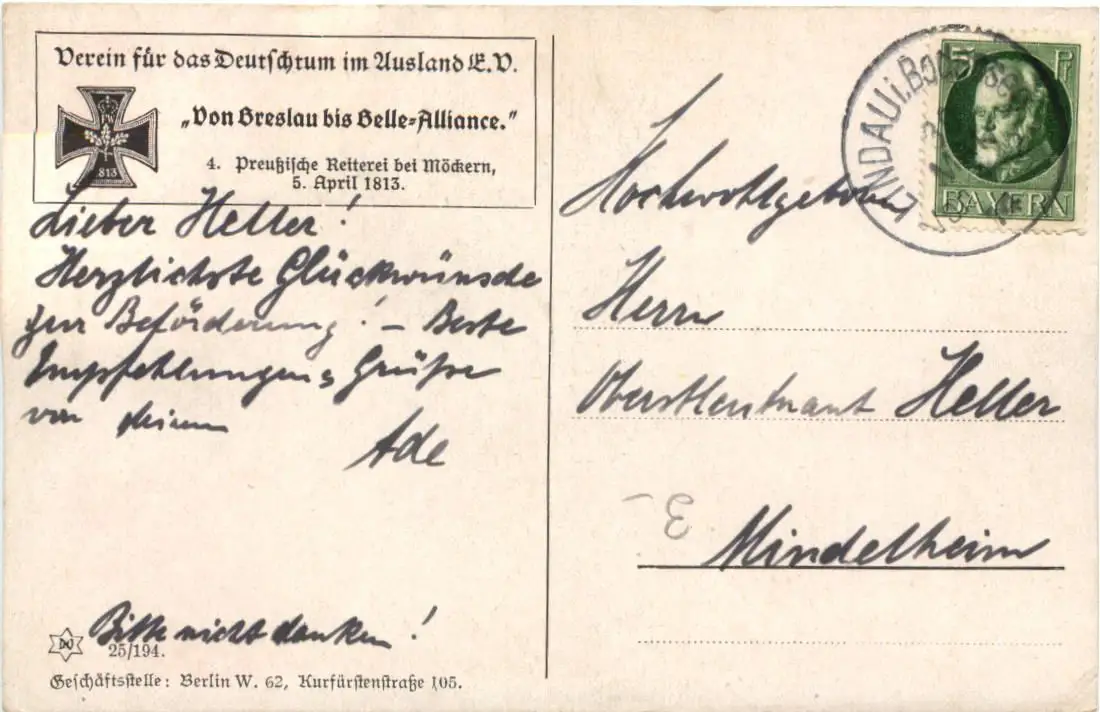 Verein für das Deutschtum im Ausland E.V.
„Von Breslau bis Belle-Alliance."
4. Preußische Reiterei bei Möckern,
5. April 1813.
1813
Lieber Heller!
Herzlichste Glückwünsche
zur Beförderung! – Beste
Empfehlungen & Grüße
von deinem
Ade
Bitte nicht danken!
25/194.
Geschäftsstelle: Berlin W. 62, Kurfürstenstraße 105.
LINDAU i. Bodensee
5 Pf
BAYERN
Hochwohlgeboren
Herrn
Oberstleutnant Heller
Mindelheim